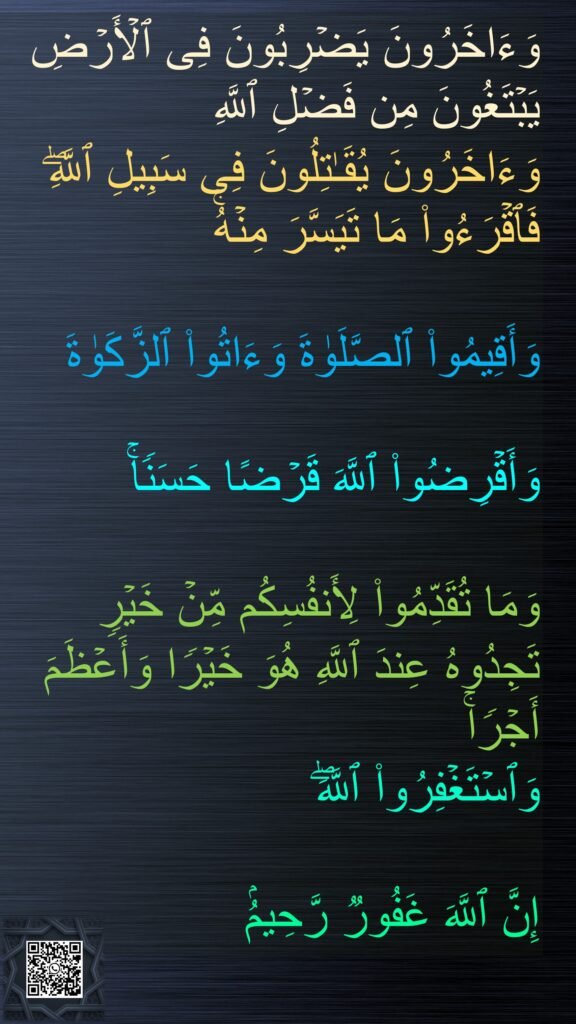 وَءَاخَرُونَ يَضۡرِبُونَ فِى ٱلۡأَرۡضِ
يَبۡتَغُونَ مِن فَضۡلِ ٱللَّهِ
وَءَاخَرُونَ يُقَـٰتِلُونَ فِى سَبِيلِ ٱللَّهِۖ
فَٱقۡرَءُواْ مَا تَيَسَّرَ مِنۡهُۚ
وَأَقِيمُواْ ٱلصَّلَوٰةَ وَءَاتُواْ ٱلزَّكَوٰةَ
وَأَقۡرِضُواْ ٱللَّهَ قَرۡضًا حَسَنًاۚ
وَمَا تُقَدِّمُواْ لِأَنفُسِكُم مِّنۡ خَيۡرٍ
تَجِدُوهُ عِندَ ٱللَّهِ هُوَ خَيۡرًا وَأَعۡظَمَ
أَجۡرًاۚ
وَٱسۡتَغۡفِرُواْ ٱللَّهَۖ
إِنَّ ٱللَّهَ غَفُورٌ رَّحِيمُۢ